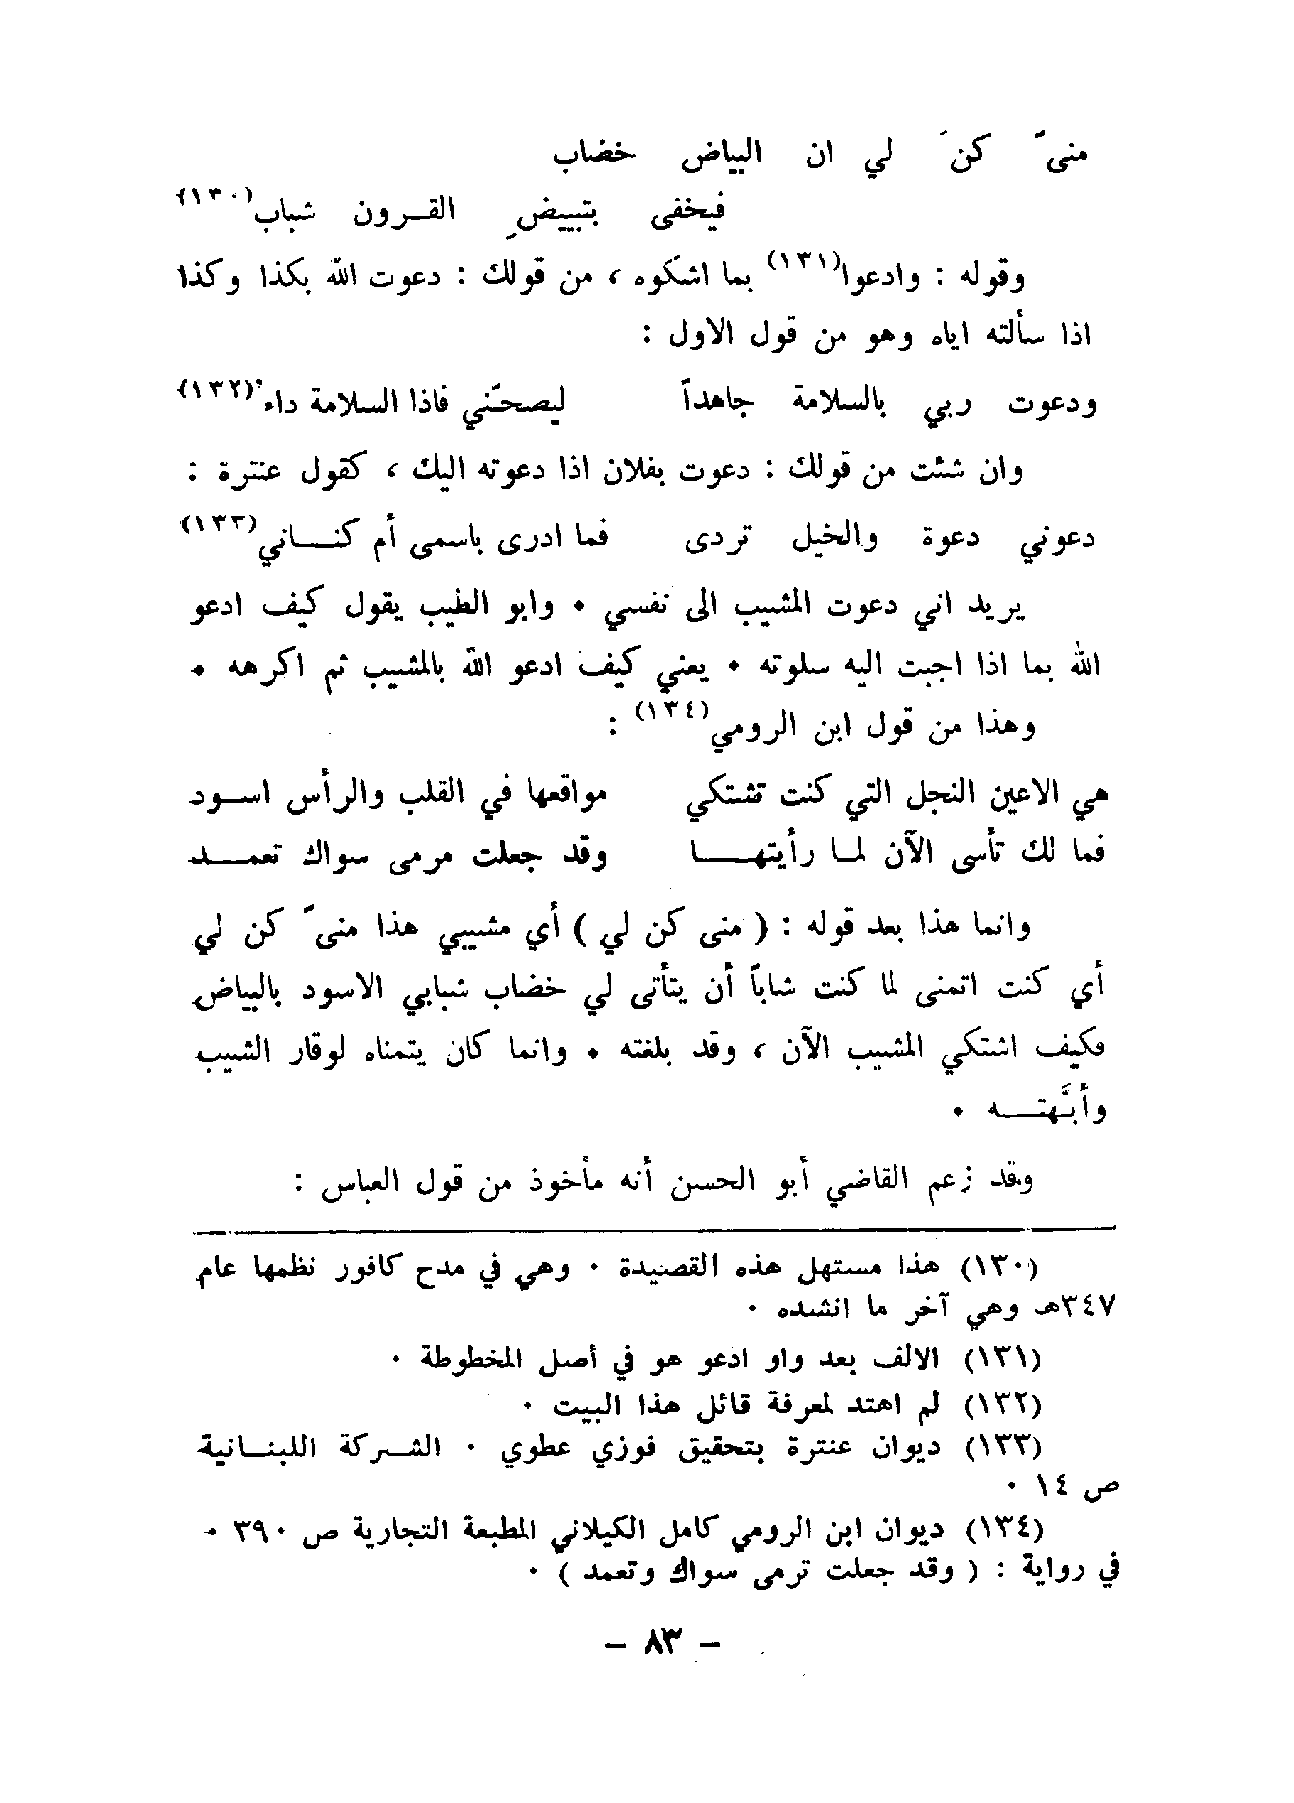 منىً كنَ لي ان البياض خضاب
فيخفى بتبييضِ القـرون شباب(١٣٠)
وقوله : وادعوا(١٣١) بما اشكوه ، من قولك : دعوت الله بكذا وكذا
اذا سألته اياه وهو من قول الاول :
ودعوت ربي بالسلامة جاهداً ليصحّني فاذا السلامة داء(١٣٢)
وان شئت من قولك : دعوت بفلان اذا دعوته اليك ، كقول عنترة :
دعوني دعوة والخيل تردى فما ادرى باسمى أم كنـــاني(١٣٣)
يريد اني دعوت المشيب الى نفسي . وابو الطيب يقول كيف ادعو
الله بما اذا اجبت اليه سلوته . يعني كيف ادعو الله بالمشيب ثم اكرهه .
وهذا من قول ابن الرومي(١٣٤) :
هي الاعين النجل التي كنت تشتكي مواقعها في القلب والرأس اســود
فما لك تأسى الآن لمـا رأيتهـــا وقد جعلت مرمى سواك تعمـــد
وانما هذا بعد قوله : ( منى كن لي ) أي مشيبي هذا منىً كن لي
أي كنت اتمنى لما كنت شاباً أن يتأتى لي خضاب شبابي الاسود بالبياض
فكيف اشتكي المشيب الآن ، وقد بلغته . وانما كان يتمناه لوقار الشيب
وأبَّهتـــه .
وقد زعم القاضي أبو الحسن أنه مأخوذ من قول العباس :
(١٣٠) هذا مستهل هذه القصيدة . وهي في مدح كافور نظمها عام
٣٤٧هـ وهي آخر ما انشده .
(١٣١) الالف بعد واو ادعو هو في أصل المخطوطة .
(١٣٢) لم اهتد لمعرفة قائل هذا البيت .
(١٣٣) ديوان عنترة بتحقيق فوزي عطوي . الشـركة اللبنـانية
ص ١٤ .
(١٣٤) ديوان ابن الرومي كامل الكيلاني المطبعة التجارية ص ٣٩٠ .
في رواية : ( وقد جعلت ترمى سواك وتعمد ) .
– ٨٣ –